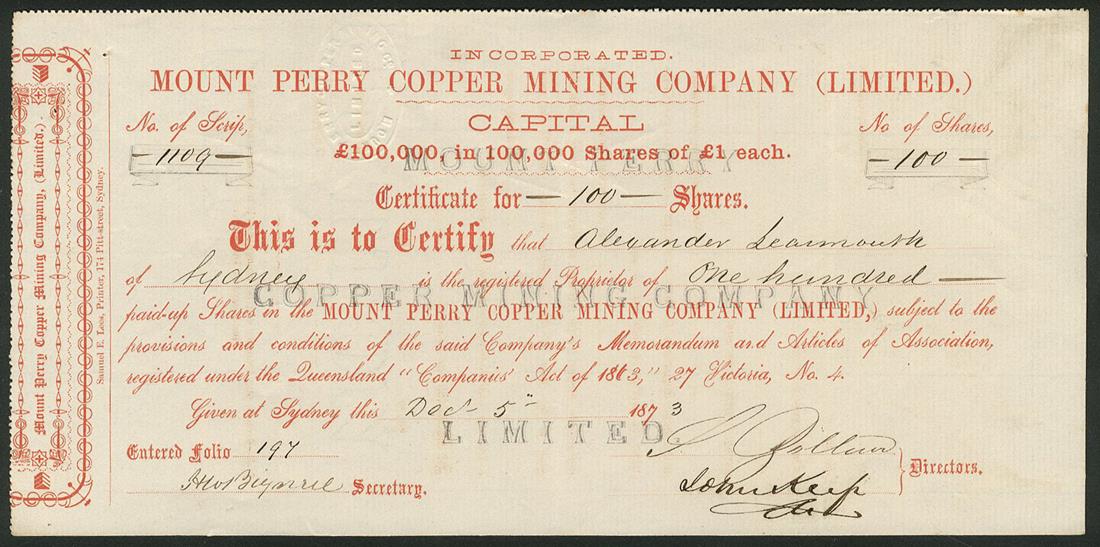 INCORPORATED.
MOUNT PERRY COPPER MINING COMPANY (LIMITED.)
CAPITAL
No. of Scrip, No of Shares,
— 1109 — — 100 —
£100,000, in 100,000 Shares of £1 each.
MOUNT PERRY
Certificate for — 100 — Shares.
This is to Certify that Alexander Learmouth
of Sydney is the registered Proprietor of One hundred —
COPPER MINING COMPANY
paid-up Shares in the MOUNT PERRY COPPER MINING COMPANY (LIMITED,) subject to the
provisions and conditions of the said Company's Memorandum and Articles of Association,
registered under the Queensland "Companies' Act of 1863," 27 Victoria, No. 4.
Given at Sydney this Dec 5th 1873
LIMITED
Entered Folio 197
Secretary.
John Keep
Directors.
Mount Perry Copper Mining Company, (Limited.)
Samuel E. Lees, Printer, 174 Pitt-street, Sydney.